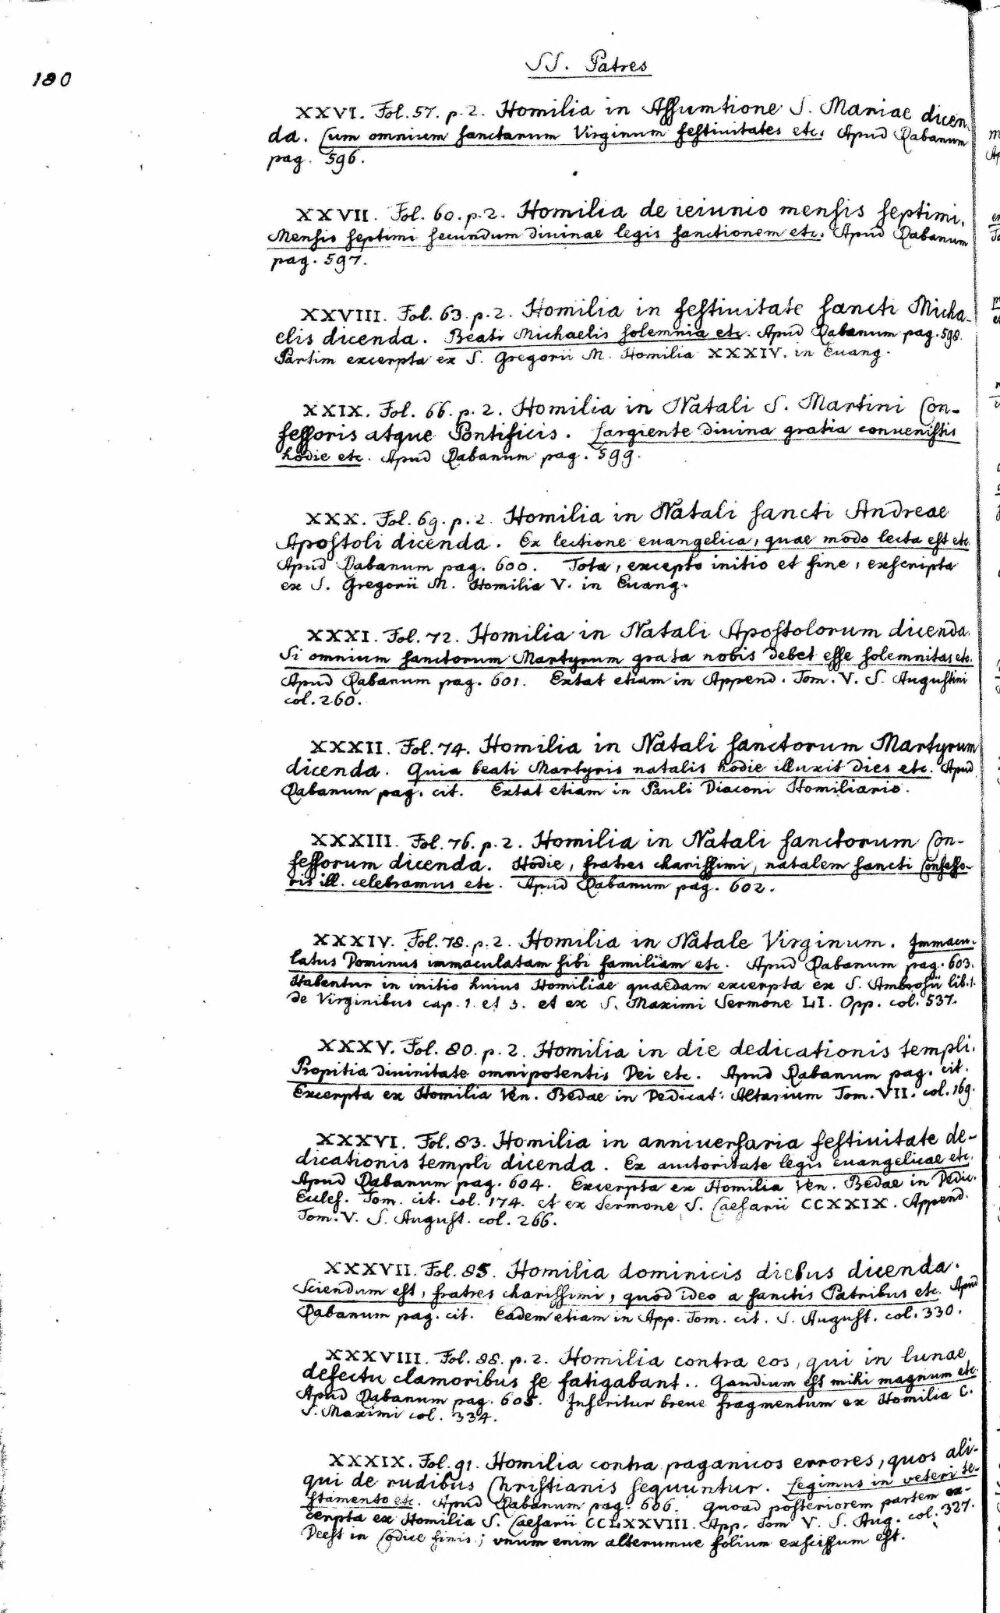 180
SS. Patres
XXVI. Fol. 57. p. 2. Homilia in Assumtione S. Mariae dicen-
da. Cum omnium sanctarum Virginum festiuitates etc. Apud Rabanum
pag. 596.
XXVII. Fol. 60. p. 2. Homilia de ieiunio mensis septimi.
Mensis septimi secundum diuinae legis sanctionem etc. Apud Rabanum
pag. 597.
XXVIII. Fol. 63. p. 2. Homilia in festiuitate sancti Micha-
elis dicenda. Beati Michaelis solemnia etc. Apud Rabanum pag. 598.
Partim excerpta ex S. Gregorii M. Homilia XXXIV. in Euang.
XXIX. Fol. 66. p. 2. Homilia in Natali S. Martini Con-
fessoris atque Pontificis. Largiente diuina gratia conuenistis
hodie etc. Apud Rabanum pag. 599.
XXX. Fol. 69. p. 2. Homilia in Natali sancti Andreae
Apostoli dicenda. Ex lectione euangelica, quae modo lecta est etc.
Apud Rabanum pag. 600. Tota, excepto initio et fine, exscripta
ex S. Gregorii M. Homilia V. in Euang.
XXXI. Fol. 72. Homilia in Natali Apostolorum dicenda.
Si omnium sanctorum Martyrum grata nobis debet esse solemnitas etc.
Apud Rabanum pag. 601. Extat etiam in Append. Tom. V. S. Augustini
col. 260.
XXXII. Fol. 74. Homilia in Natali sanctorum Martyrum
dicenda. Quia beati Martyris natalis hodie illuxit dies etc. Apud
Rabanum pag. cit. Extat etiam in Pauli Diaconi Homiliario.
XXXIII. Fol. 76. p. 2. Homilia in Natali sanctorum Con-
fessorum dicenda. Hodie, fratres charissimi, natalem sancti Confesso-
ris ill. celebramus etc. Apud Rabanum pag. 602.
XXXIV. Fol. 78. p. 2. Homilia in Natale Virginum. Immacu-
latus Dominus immaculatam sibi familiam etc. Apud Rabanum pag. 603.
Habentur in initio huius Homiliae quaedam excerpta ex S. Ambrosii lib. 1.
de Virginibus cap. 1. et 3. et ex S. Maximi Sermone LI. Opp. col. 537.
XXXV. Fol. 80. p. 2. Homilia in die dedicationis templi.
Propitia diuinitate omnipotentis Dei etc. Apud Rabanum pag. cit.
Excerpta ex Homilia Ven. Bedae in Dedicat: Altarium Tom. VII. col. 169.
XXXVI. Fol. 83. Homilia in anniuersaria festiuitate de-
dicationis templi dicenda. Ex auctoritate legis euangelicae etc.
Apud Rabanum pag. 604. Excerpta ex Homilia Ven. Bedae in Dedic.
Eccles. Tom. cit. col. 174. et ex Sermone S. Caesarii CCXXIX. Append.
Tom. V. S. August. col. 266.
XXXVII. Fol. 85. Homilia dominicis diebus dicenda.
Sciendum est, fratres charissimi, quod ideo a sanctis Patribus etc. Apud
Rabanum pag. cit. Eadem etiam in App. Tom. cit. S. August. col. 330.
XXXVIII. Fol. 88. p. 2. Homilia contra eos, qui in lunae
defectu clamoribus se fatigabant.. Gaudium est mihi magnum etc.
Apud Rabanum pag. 605. Inseritur breue fragmentum ex Homilia C.
S. Maximi col. 334.
XXXIX. Fol. 91. Homilia contra paganicos errores, quos ali-
qui de rudibus Christianis sequuntur. Legimus in veteri te-
stamento etc. Apud Rabanum pag. 606. Quoad posteriorem partem ex-
cerpta ex Homilia S. Caesarii CCLXXVIII. App. Tom V. S. Aug. col. 327.
Deest in Codice finis; vnum enim alterumue folium exscissum est.